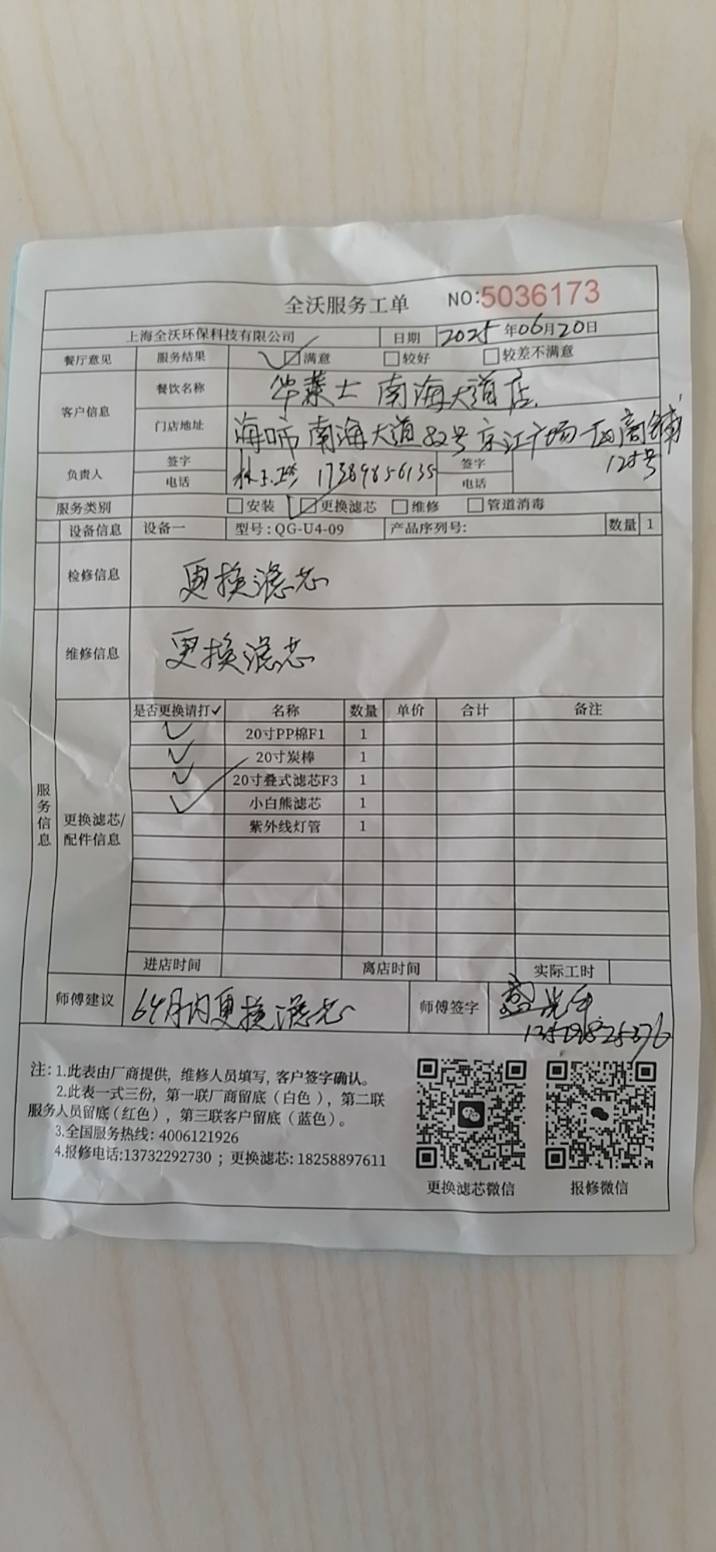 全沃服务工单 NO:5036173
上海全沃环保科技有限公司 日期 2025年06月20日
餐厅意见 服务结果 ✓满意 较好 较差不满意
客户信息 餐饮名称 华莱士 南海大道店
门店地址 海口市南海大道82号京江广场一层商铺
125号
负责人 签字 签字
电话 17389856135 电话
服务类别 安装 ✓更换滤芯 维修 管道消毒
设备信息 设备一 型号:QG-U4-09 产品序列号: 数量 1
检修信息 更换滤芯
维修信息 更换滤芯
服务信息
更换滤芯/配件信息
是否更换请打✓ 名称 数量 单价 合计 备注
✓ 20寸PP棉F1 1
✓ 20寸炭棒 1
✓ 20寸叠式滤芯F3 1
✓ 小白熊滤芯 1
紫外线灯管 1
进店时间 离店时间 实际工时
师傅建议 6个月内更换滤芯 师傅签字
注: 1.此表由厂商提供, 维修人员填写, 客户签字确认。
2.此表一式三份, 第一联厂商留底(白色), 第二联
服务人员留底(红色), 第三联客户留底(蓝色)。
3.全国服务热线: 4006121926
4.报修电话:13732292730 ; 更换滤芯: 18258897611
更换滤芯微信 报修微信